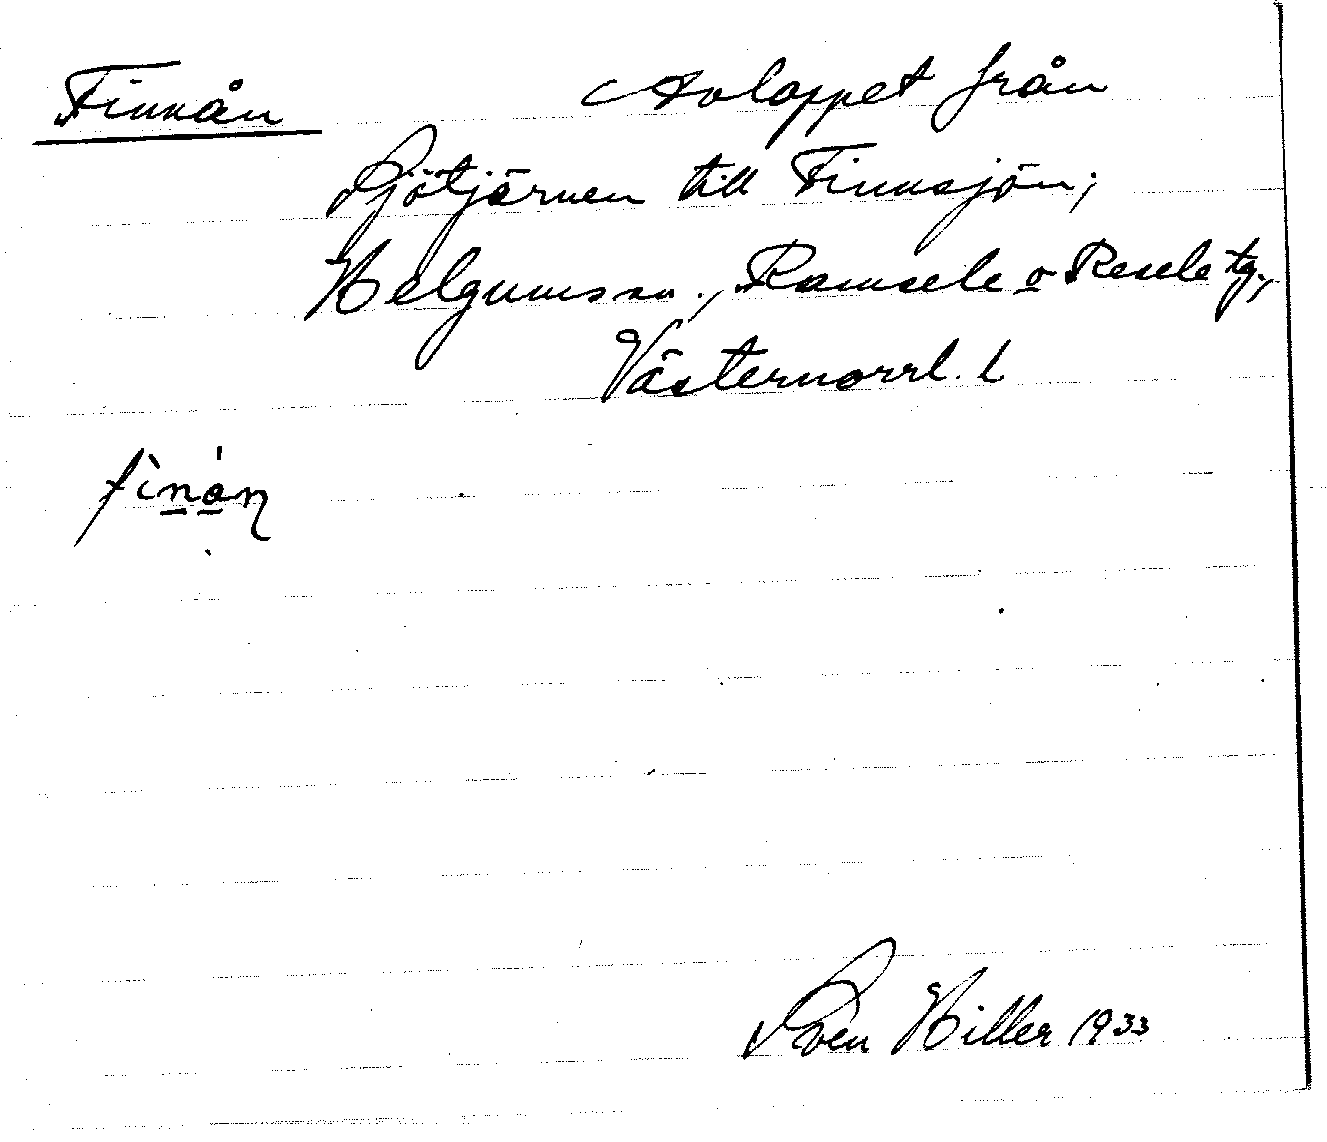 Finnån Avloppet från
Sjötjärnen till Finnsjön;
Helgums sn., Ramsele o Resele tg,
Västernorrl. l
fìnán
Sven Hiller 1933